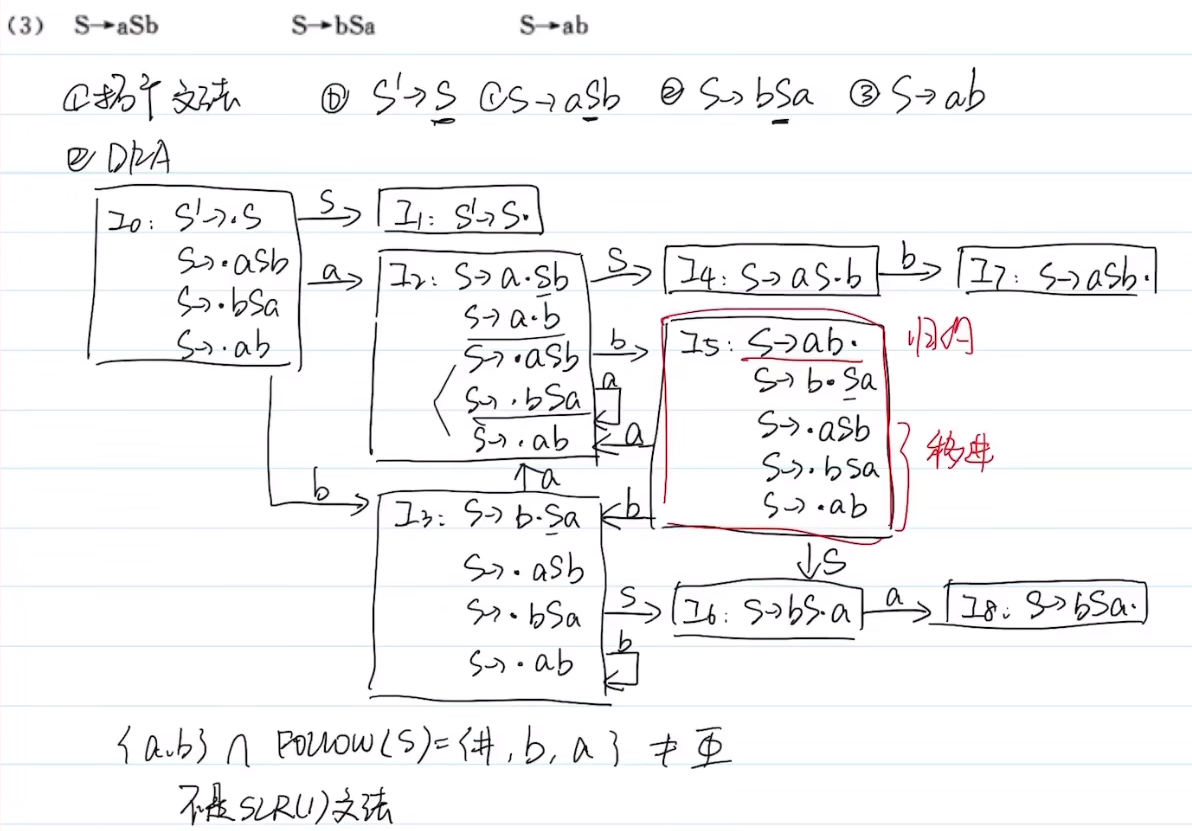 (3) S→aSb S→bSa S→ab
①拓广文法 ⓪ S'→S ①S→aSb ② S→bSa ③ S→ab
② DFA
I0: S'→·S
S→·aSb
S→·bSa
S→·ab
S
a
b
I1: S'→S·
I2: S→a·Sb
S→a·b
S→·aSb
S→·bSa
S→·ab
S
b
a
a
I4: S→aS·b
b
I7: S→aSb·
I5: S→ab·
S→b·Sa
S→·aSb
S→·bSa
S→·ab
归约
移进
a
b
I3: S→b·Sa
S→·aSb
S→·bSa
S→·ab
S
b
S
I6: S→bS·a
a
I8: S→bSa·
{a,b} ∩ FOLLOW(S)={#,b,a} ≠ Φ
不是SLR(1)文法